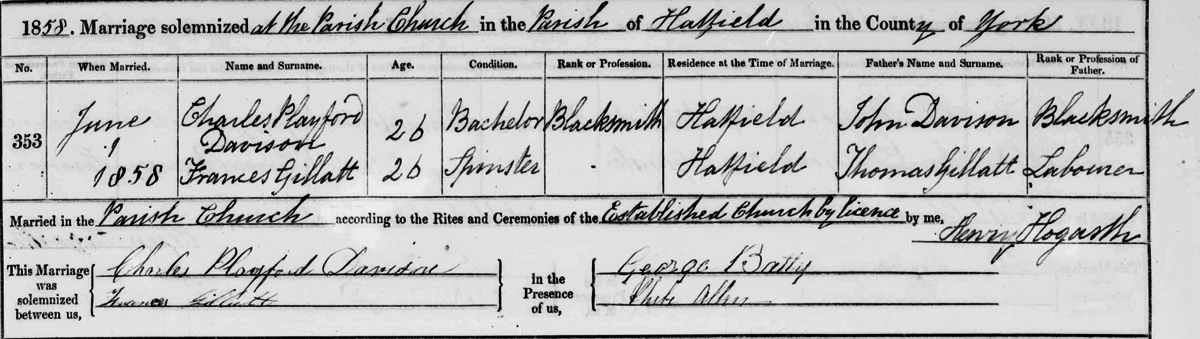 1858. Marriage solemnized at the Parish Church in the Parish of Hatfield in the County of York
No. When Married. Name and Surname. Age. Condition. Rank or Profession. Residence at the Time of Marriage. Father's Name and Surname. Rank or Profession of Father.
353 June 1 1858 Charles Playford Davison 26 Bachelor Blacksmith Hatfield John Davison Blacksmith
Frances Gillatt 26 Spinster Hatfield Thomas Gillatt Labourer
Married in the Parish Church according to the Rites and Ceremonies of the Established Church by licence by me, Henry Hogarth
This Marriage was solemnized between us, Charles Playford Davison in the Presence of us, George Batty
Frances Gillatt Allen